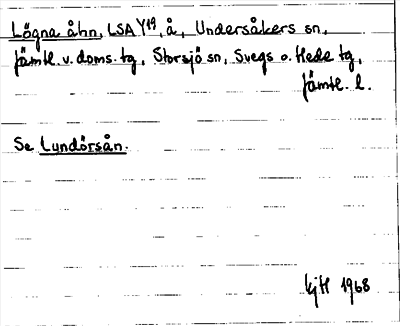 Lögna åhn, LSA Y19, å, Undersåkers sn,
Jämtl. v. doms. tg, Storsjö sn, Svegs o. Hede tg,
Jämtl. l.
Se Lundörsån.
1968